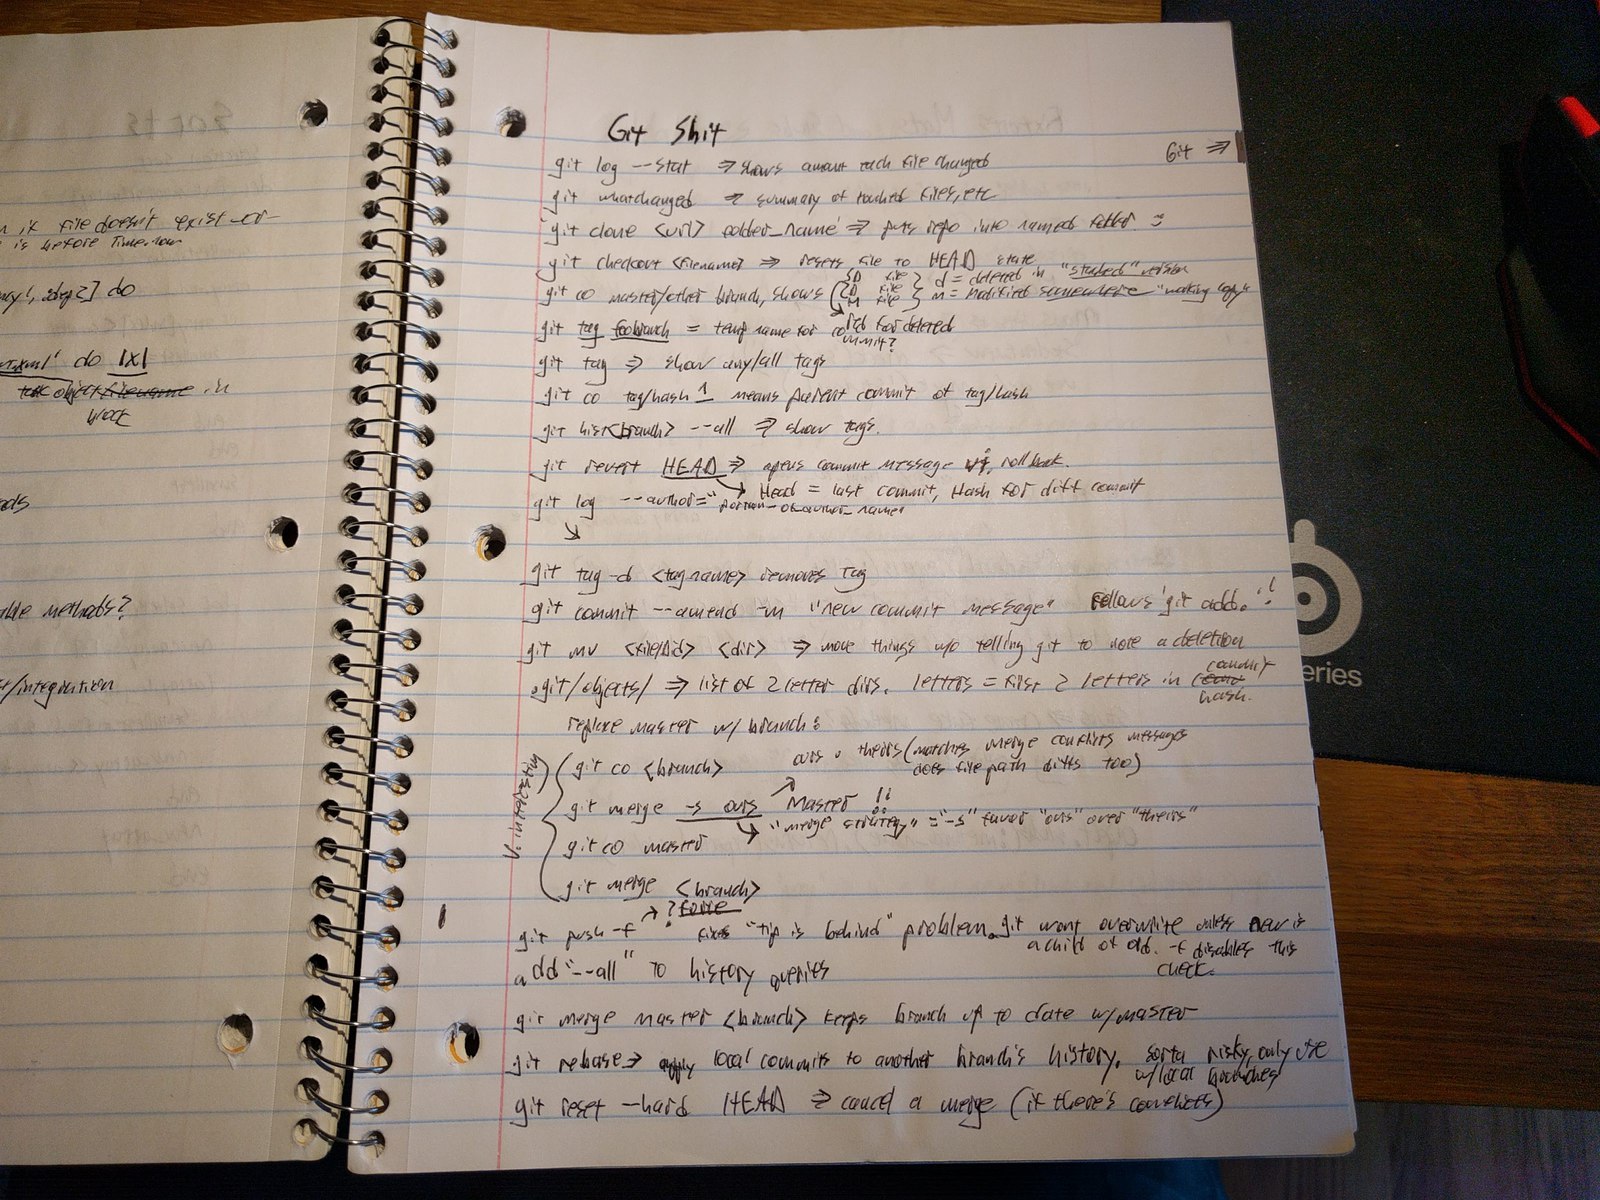 if file doesn't exist -or-
is before Time.now
2dop2] do
do |x|
object filename in
block
methods?
/integration
Git Shit
Git ⇒
git log --stat ⇒ shows amount each file changed
git whatchanged ⇒ summary of touched files, etc
git clone <url> folder_name ⇒ puts repo into named folder. :)
git checkout <filename> ⇒ resets file to HEAD state
git co master/other branch, shows ( { D file } d = deleted in "stashed" version
D file
M file } m = modified somewhere "working copy"
git tag foobranch = temp name for commit?
for deleted
git tag ⇒ show any/all tags
git co tag/hash^ means parent commit of tag/hash
git hist <branch> --all ⇒ show tags.
git revert HEAD ⇒ opens commit message vi, rollback.
Head = last commit, Hash for diff commit
git log --author="portion-of-author_name"
git tag -d <tagname> removes tag
git commit --amend -m "new commit message" Follows 'git add.' !
git mv <file/dir> <dir> ⇒ move things w/o telling git to note a deletion
.git/objects/ ⇒ list of 2 letter dirs. letters = first 2 letters in commit
hash.
replace master w/ branch:
V. interesting
git co <branch>
ours v theirs (matches merge conflicts messages
does file path diffs too)
git merge -s ours Master !!
"merge strategy" = "-s" favor "ours" over "theirs"
git co master
git merge <branch>
? force
git push -f fixes "tip is behind" problem. git wont overwrite unless new is
a child of old. -f disables this
check.
add "--all" to history queries
git merge master <branch> keeps branch up to date w/master
git rebase → apply local commits to another branch's history. sorta risky, only use
w/local branches
git reset --hard HEAD ⇒ cancel a merge (if there's conflicts)
eries